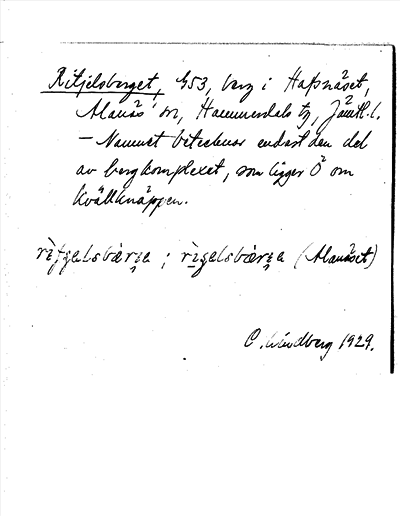 Ritjelsberget, 453, berg i Hafsnäset,
Alanäs sn, Hammerdals tg, Jämtl. l.
— Namnet betecknar endast den del
av bergkomplexet, som ligger Ö om
Kvällknäppen.
(Alanäset)
C. Lindberg 1929.